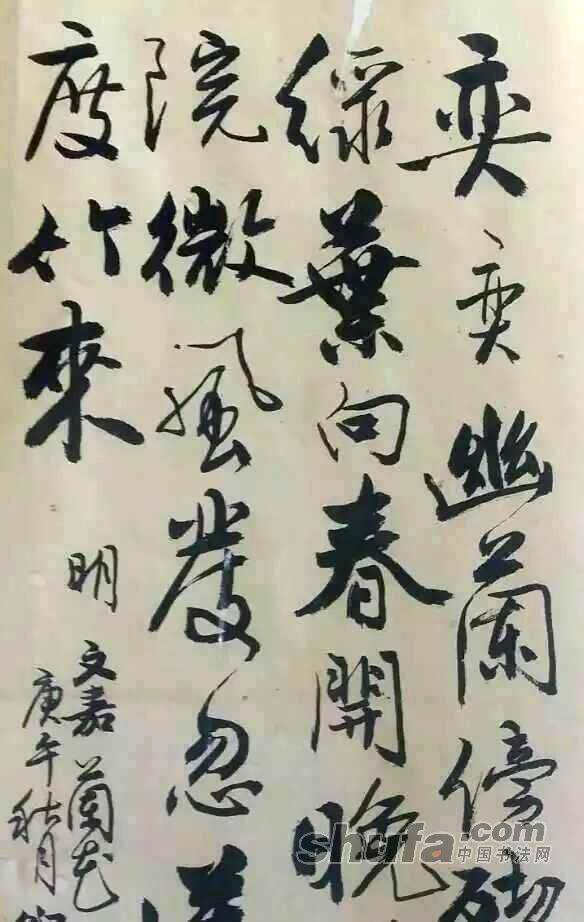 奕奕幽蘭傍砌
綠葉向春開晚
院微風發忽送
度竹來
明 文嘉蘭花
庚午秋月
shufa.com
中国书法网